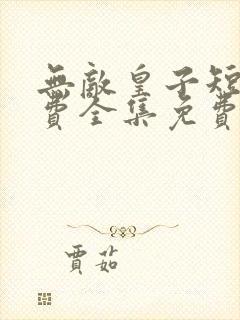 無敵皇子短
費全集免費
賈茹